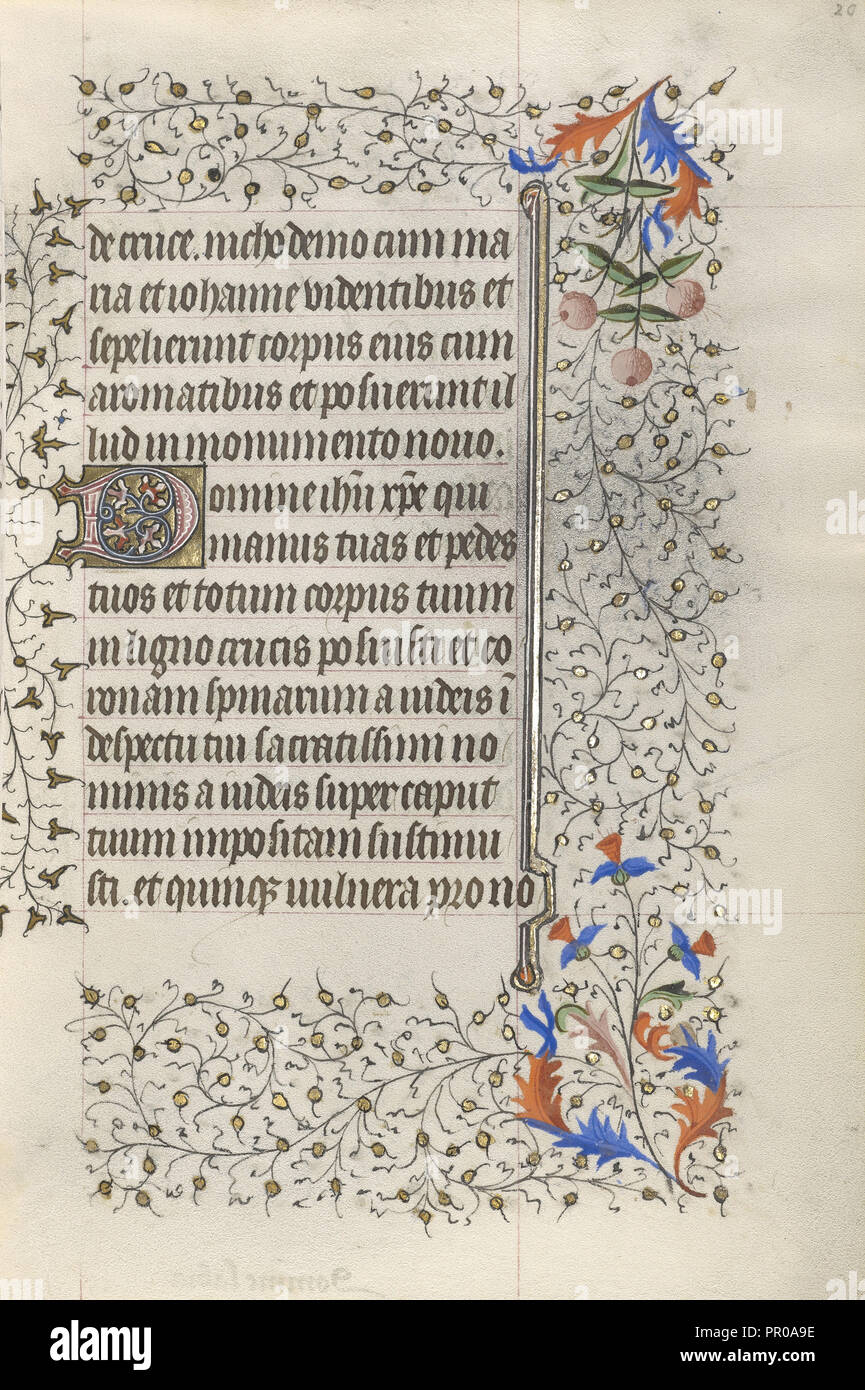 20
de cruce. nichodemo cum ma
ria et iohanne videntibus et
sepelierunt corpus eius cum
aromatibus et posuerunt il
lud in monumento nouo.
Domine ihū xp̄e qui
manus tuas et pedes
tuos et totum corpus tuum
in ligno crucis posuisti et co
ronam spinarum a iudeis ī
despectu tui sacratissimi no
minis a iudeis super caput
tuum impositam sustinui
sti. et quinqꝫ uulnera pro no
alamy
Image ID: PR0A9E
www.alamy.com